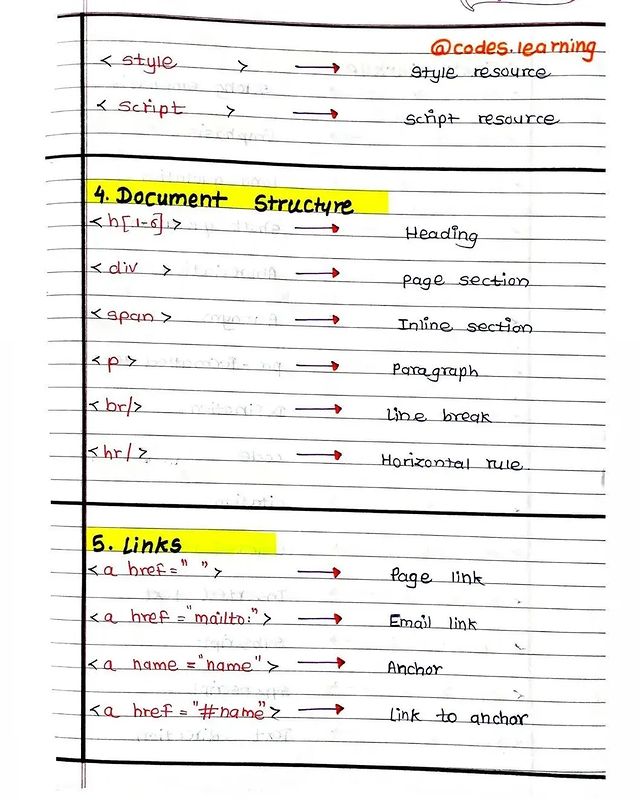 @codes.learning
<style> → Style resource
<script> → script resource
4. Document Structure
<h[1-6]> → Heading
<div > → page section
<span> → Inline section
<p> → Paragraph
<br/> → Line break
<hr/> → Horizontal rule
5. Links
<a href=" "> → Page link
<a href="mailto:"> → Email link
<a name="name"> → Anchor
<a href="#name"> → Link to anchor